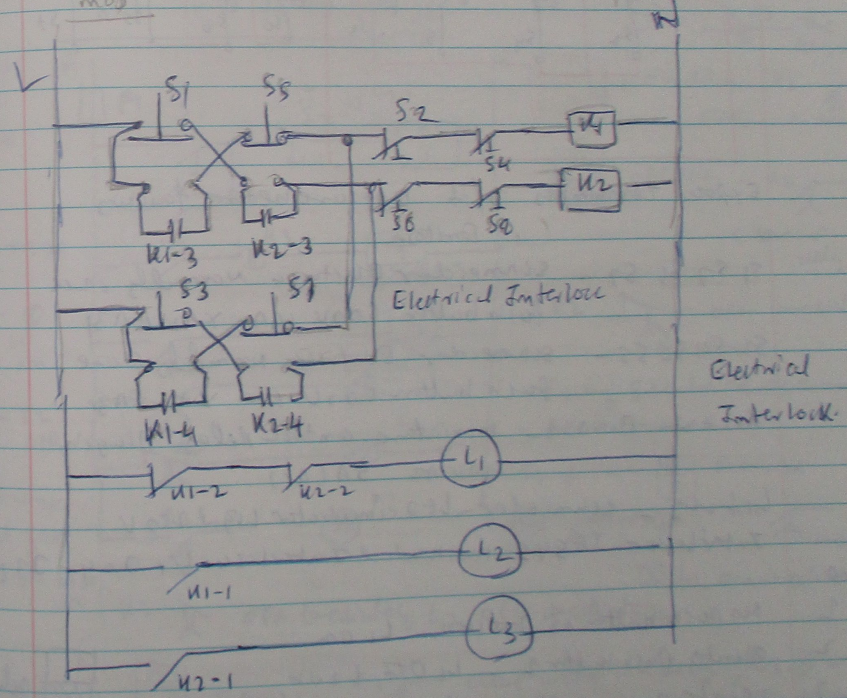 N
L
S1 S5
S2
S4 K1
K2
S6 S8
K1-3 K2-3
S3 S7
Electrical Interlock
K1-4 K2-4
Electrical
Interlock.
K1-2 K2-2 L1
K1-1 L2
K2-1 L3